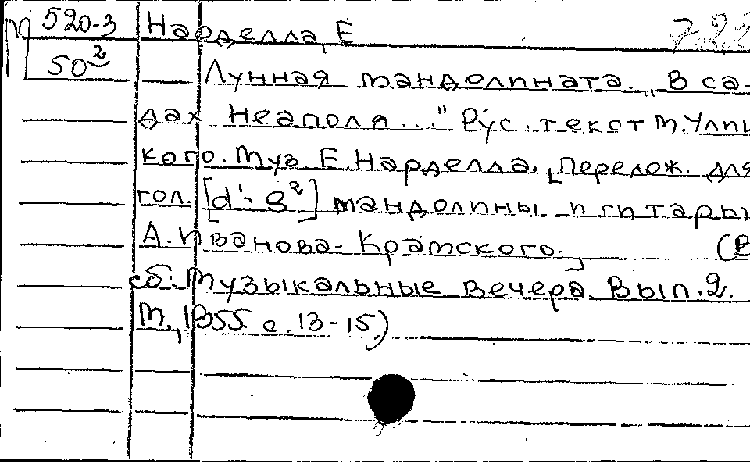 520-3 Нарделла, Е
50²
Лунная мандолината. „В са-
дах Неаполя..." Рус. текст М. Улиц
кого. Муз. Е. Нарделла. [Перелож. для
гол. [d'-e²] мандолины и гитары
А. Иванова-Крамского.] (В
сб.: Музыкальные вечера. Вып. 2.
М., 1955 с. 13-15)